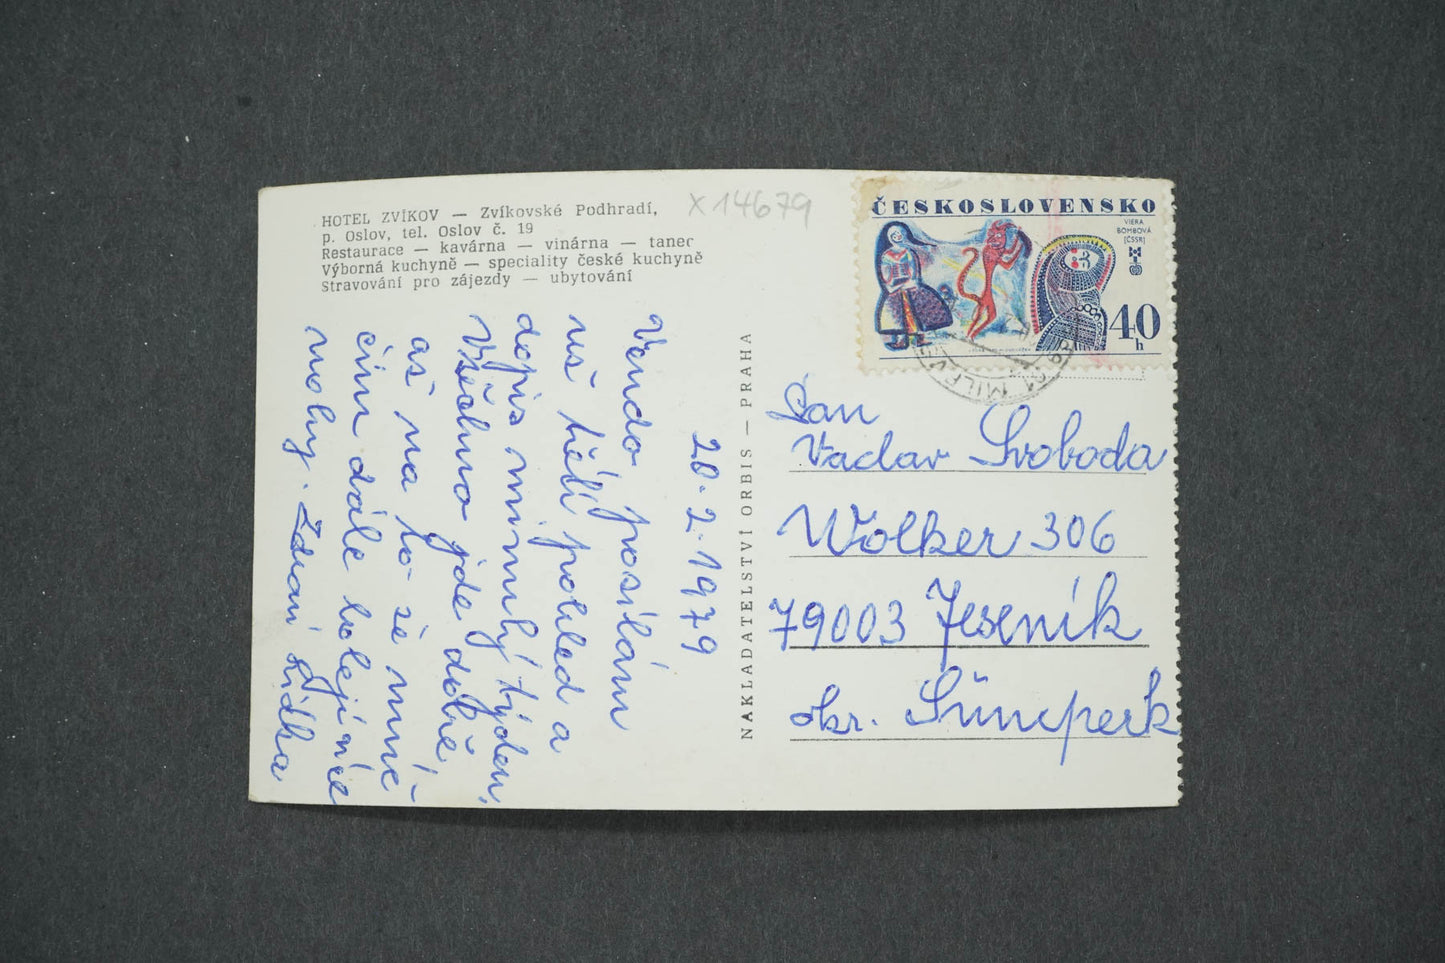 HOTEL ZVÍKOV — Zvíkovské Podhradí,
p. Oslov, tel. Oslov č. 19
Restaurace — kavárna — vinárna — tanec
Výborná kuchyně — speciality české kuchyně
Stravování pro zájezdy — ubytování
X 14679
ČESKOSLOVENSKO
VIERA
BOMBOVÁ
[ČSSR]
40
h
20. 2. 1979
Vendo posílám
už těší pohled a
dopis minulý týden,
Všechno jde dobře,
až na to že mně
čim dále bolejí více
nohy. Zdraví Lidka
NAKLADATELSTVÍ ORBIS — PRAHA
Pan
Vaclav Svoboda
Wolker 306
79003 Jeseník
okr. Šumperk